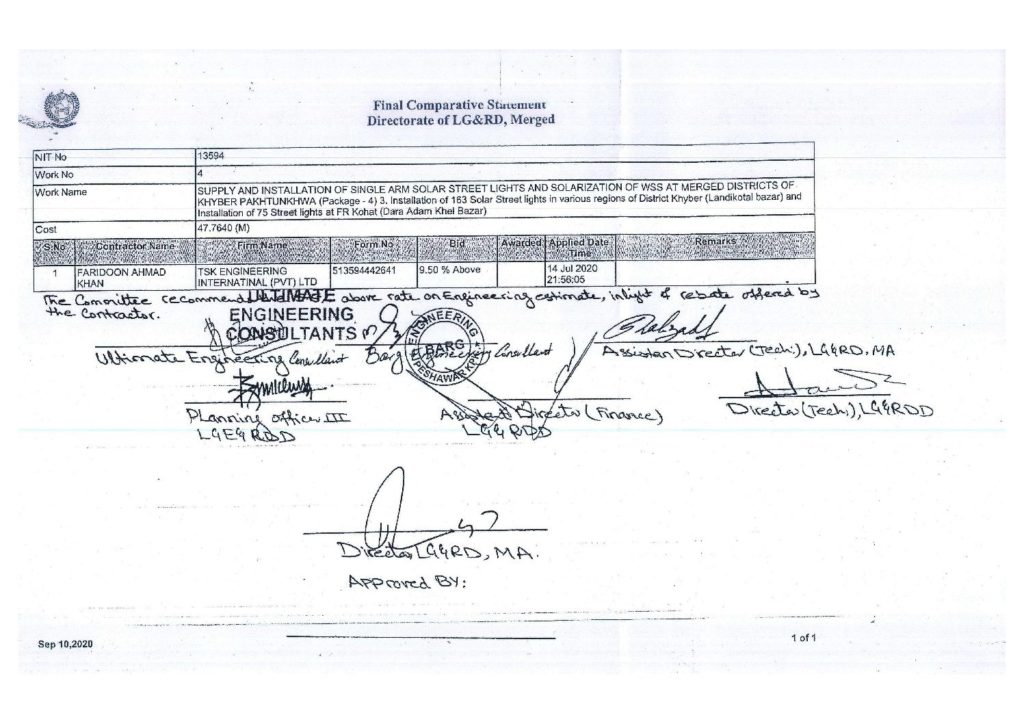 Final Comparative Statement
Directorate of LG&RD, Merged
NIT No 13594
Work No 4
Work Name SUPPLY AND INSTALLATION OF SINGLE ARM SOLAR STREET LIGHTS AND SOLARIZATION OF WSS AT MERGED DISTRICTS OF
KHYBER PAKHTUNKHWA (Package - 4) 3. Installation of 163 Solar Street lights in various regions of District Khyber (Landikotal bazar) and
Installation of 75 Street lights at FR Kohat (Dara Adam Khel Bazar)
Cost 47.7640 (M)
S.No Contractor Name Firm Name Form No Bid Awarded Applied Date Remarks
Time
1 FARIDOON AHMAD TSK ENGINEERING 513594442641 9.50 % Above 14 Jul 2020
KHAN INTERNATINAL (PVT) LTD 21:56:05
The Committee recommend above rate on Engineering estimate, inlight of rebate offered by
the Contractor.
ULTIMATE
ENGINEERING
CONSULTANTS
ENGINEERING
BARG
PESHAWAR KPK
Ultimate Engineering Consultant Barg Engineering Consultant Assistan Director (Tech:), LG&RD, MA
Planning officer III Assistant Director (Finance) Director (Tech:), LG&RDD
LGE&RDD LG&RDD
Director LG&RD, MA.
Approved By:
Sep 10,2020 1 of 1